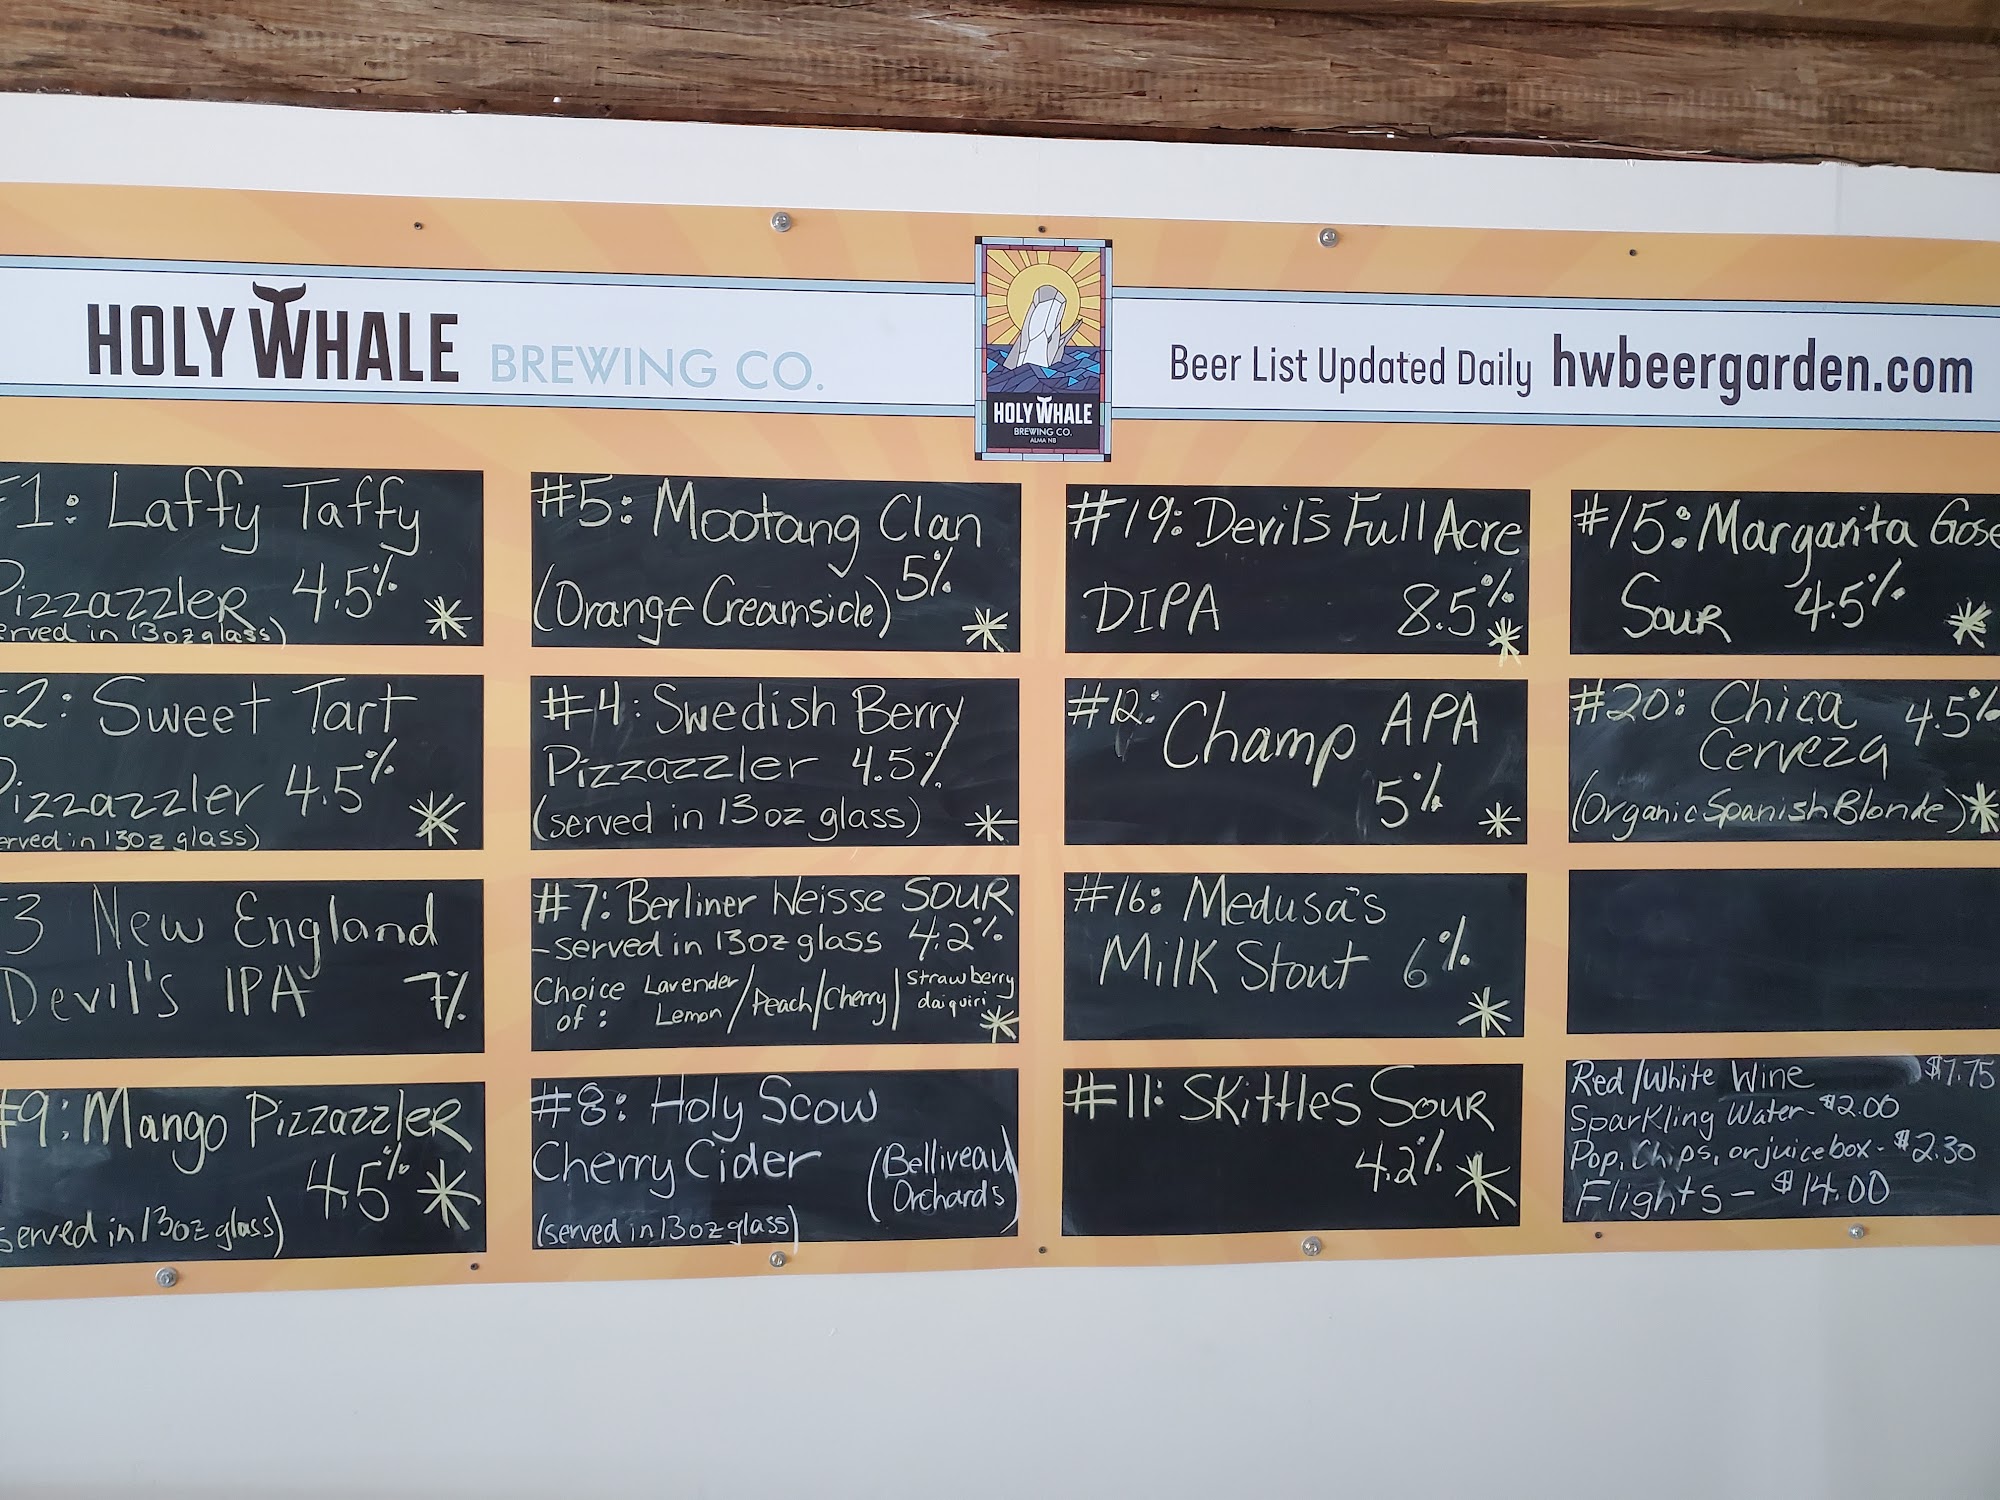 HOLY WHALE BREWING CO.
HOLY WHALE
BREWING CO.
ALMA NB
Beer List Updated Daily hwbeergarden.com
1: Laffy Taffy
Pizzazzler 4.5%
erved in 13oz glass)
*
2: Sweet Tart
Pizzazzler 4.5%
erved in 13oz glass)
*
3 New England
Devil's IPA 7%
#9: Mango Pizzazzler
4.5% *
served in 13oz glass)
#5: Mootang Clan
5%
(Orange Creamside)
*
#4: Swedish Berry
Pizzazzler 4.5%
(served in 13oz glass) *
#7: Berliner Weisse SOUR
-served in 13oz glass 4.2%
Choice of: Lavender Lemon/Peach/Cherry/Strawberry daiquiri
*
#8: Holy Scow
Cherry Cider (Belliveau Orchards)
(served in 13oz glass)
#19: Devil's Full Acre
DIPA 8.5%
*
#12: Champ APA
5% *
#16: Medusa's
Milk Stout 6%
*
#11: Skittles Sour
4.2% *
#15: Margarita Gose
Sour 4.5% *
#20: Chica 4.5%
Cerveza
(Organic Spanish Blonde) *
Red/White Wine $7.75
Sparkling Water- $2.00
Pop, Chips, or juicebox- $2.30
Flights - $14.00